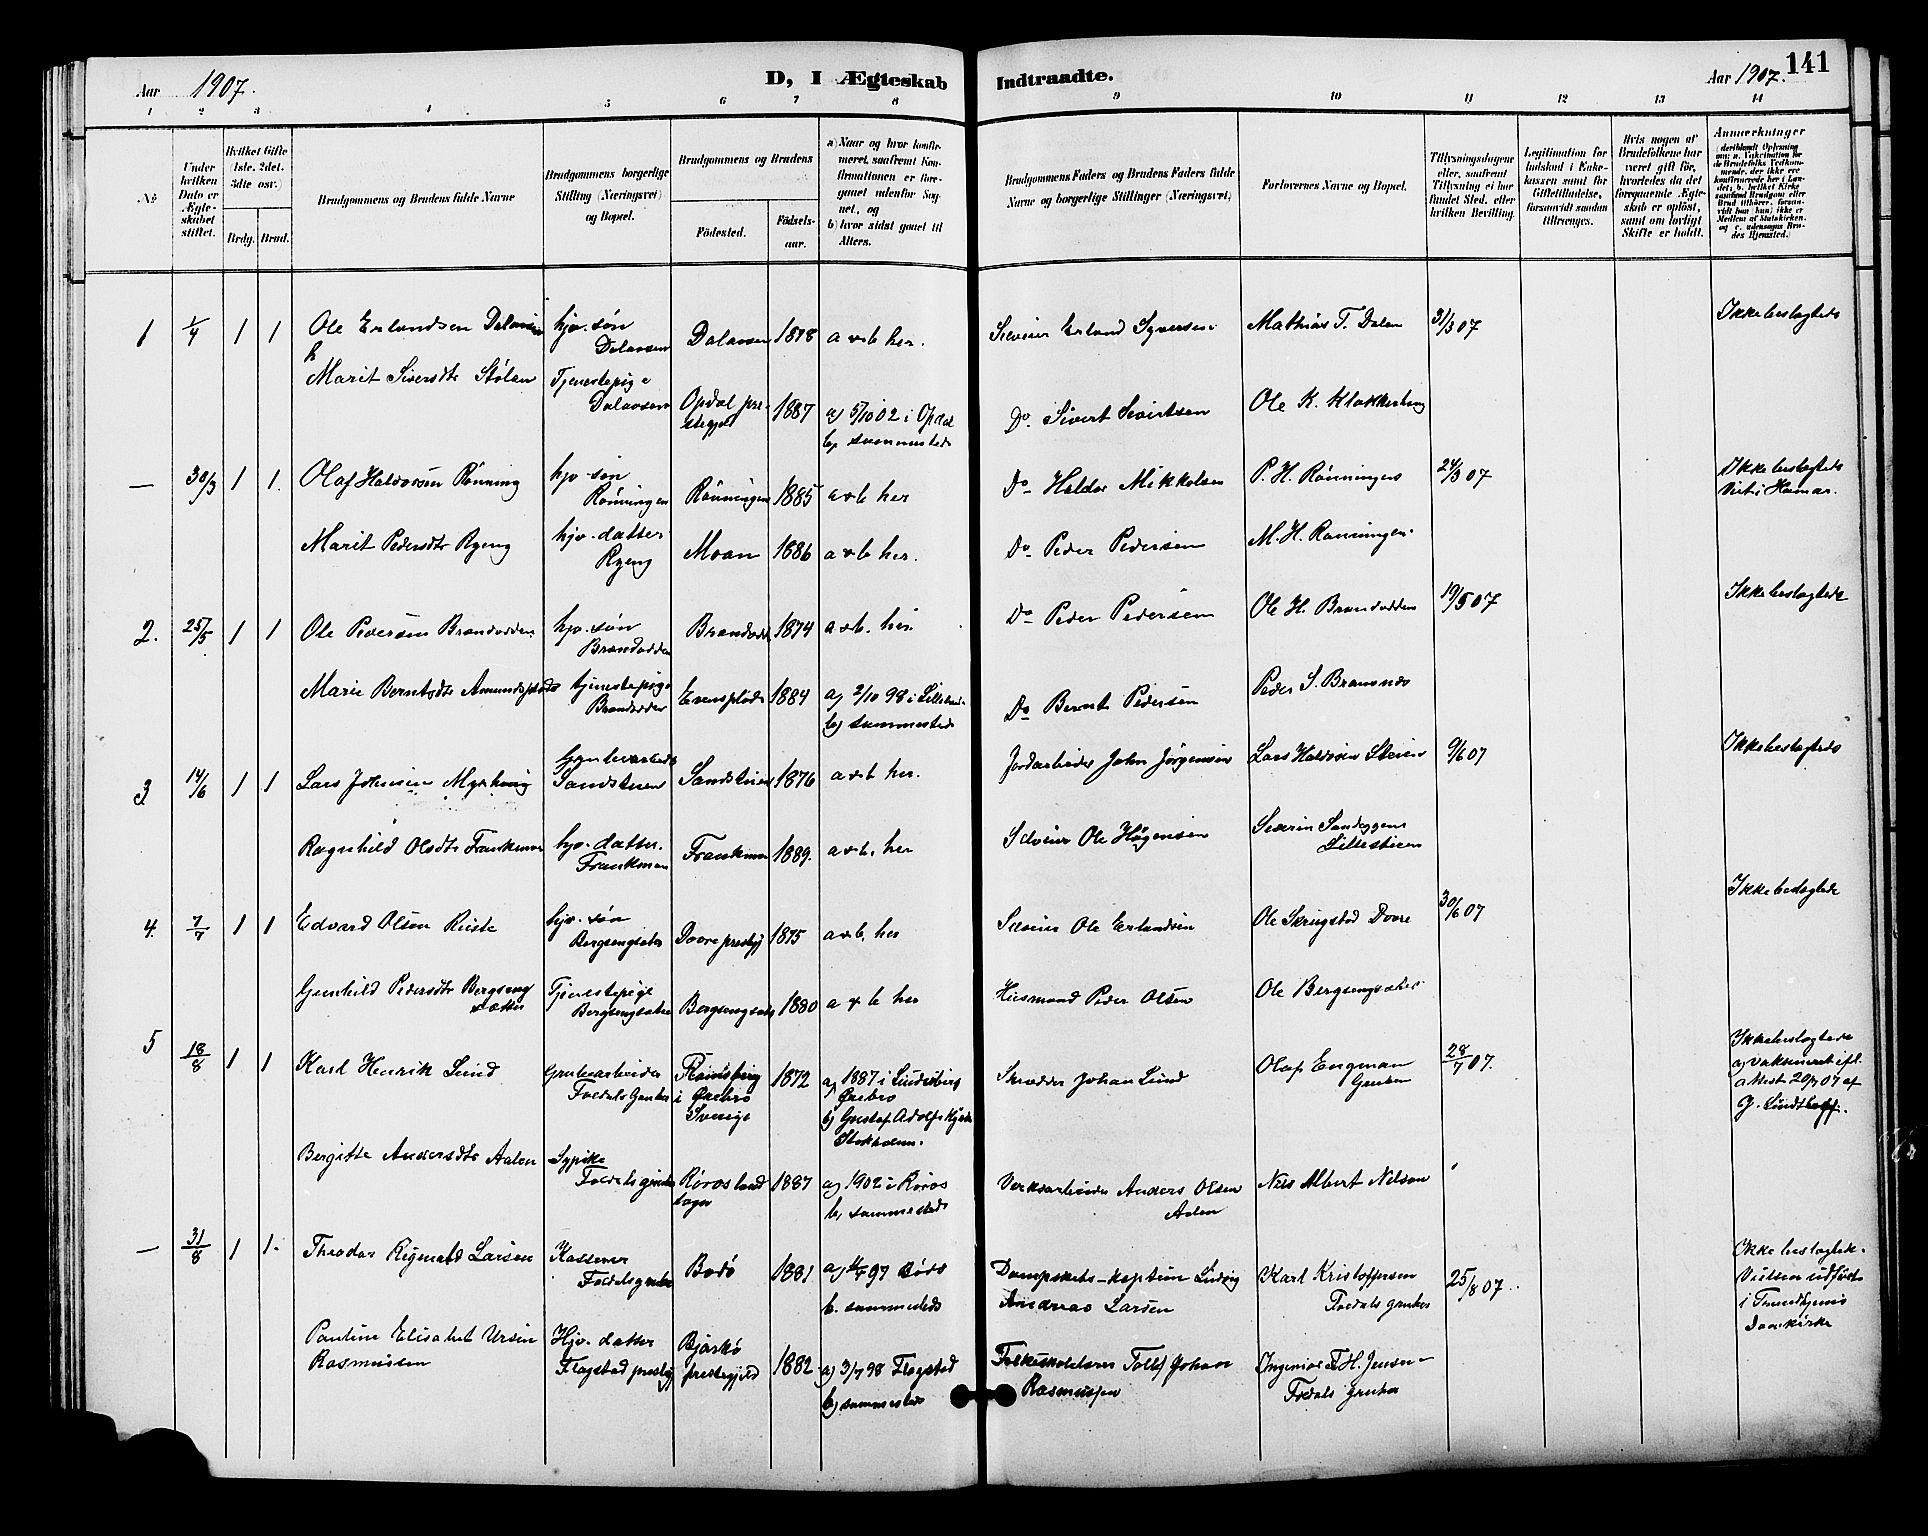 Aar 1907.
D, I Ægteskab Indtraadte.
Aar 1907. 141
1 2 3 4 5 6 7 8 9 10 11 12 13 14
No
Under hvilken Dato er Ægteskabet stiftet.
Hvilket Gifte (1ste. 2det. 3dte osv.)
Brdg. Brud.
Brudgommens og Brudens fulde Navne
Brudgommens borgerlige Stilling (Næringsvei) og Bopæl.
Brudgommens og Brudens
Fødested. Fødselsaar.
a) Naar og hvor konfirmeret, saafremt Konfirmationen er foregaaet udenfor Sognet, og
b) hvor sidst gaaet til Alters.
Brudgommens Faders og Brudens Faders fulde Navne og borgerlige Stillinger (Næringsvei)
Forlovernes Navne og Bopæl.
Tillysningsdagene eller, saafremt Tillysning ei har fundet Sted, efter hvilken Bevilling.
Legitimation for Indskud i Enkekassen samt for Giftetilladelse, forsaavidt saadan tiltrænges.
Hvis nogen af Brudefolkene har været gift før, hvorledes da det foregaaende Ægteskab er opløst, samt om lovligt Skifte er holdt.
Anmærkninger
1 1/4 1 1 Ole Erlandsen Dalaasen hjv. søn Dalaasen Dalaasen 1878 a & b her. Selveier Erland Syversen Mathias T. Dalen 31/3 07 Ikke beslægtede
Marit Siversdtr Stølan Tjenestepige Dalaasen Opdal prestegjeld 1887 a) 5/10 02 i Opdal b) sammesteds Do. Sivert Sivertsen Ole K. Klokkerhaug
— 30/3 1 1. Olaf Halvorsen Rønning hjv. søn Rønningen Rønningen 1885 a & b her Do Haldor Mikkelsen P. H. Rønningen 24/3 07 Ikke beslægtede Viet i Hamar.
Marit Pedersdtr Ryeng hjv. datter Ryeng Moan 1886 a & b her. Do Peder Pedersen M. H. Rønningen
2. 25/5 1 1 Ole Pedersen Brandodden hjv. søn Brandodden Brandodd 1874 a & b. her Do Peder Pedersen Ole H. Brandodden 19/5 07 Ikke beslægtede
Marie Berntsdtr Amundsplads tjenestepige Brandodden Evensplads 1884 a) 2/10 98 i b) sammesteds Do Bernt Pedersen Peder S. Bransnes
3 14/6 1 1 Lars Johnsen Myrhaug Grubearbeider Sandstuen Sandstuen 1876 a & b her. Jordarbeider John Jørgensen Lars Haldorsen Steien 9/6 07 Ikke beslægtede
Ragnhild Olsdtr Frankmoen hjv. datter. Frankmoen Frankmo 1889. a & b, her Selveier Ole Høgensen Severin Sandeggen Lillesteien
4. 7/7 1 1 Edvard Olsen Ruste hjv. søn Bergsengsæter Dovre prestgj 1875 a & b, her Selveier Ole Erlandsen Ole Skrugstad Dovre 30/6 07 Ikke beslægtede
Gunhild Pedersdtr Bergseng sætter Tjenestepige Bergsengsætre Bergsengsætr 1880 a & b her Husmand Peder Olsen Ole Bergsengsætre
5 18/8 1 1 Karl Henrik Lund Grubearbeider Foldals Gruber Ramsberg i Ørebro Sverige 1872 a) 1887 i Lindesberg Ørebro b) Gustaf Adolfs Kyrka Stokholm. Skræder Johan Lund Olaf Engman Gruben 28/7 07. Ikke beslægtede a) vaksineret ifl. attest 20/7 07 af
Bergitte Andersdtr Aalen Sypike Foldalsgruber Røros landsogn 1887 a) 1902 i Røros b) sammesteds Verksarbeider Anders Olsen Aalen Nils Albert Nilsen
— 31/8 1 1. Theodor Rignald Larsen Kasserer Foldalsgruber Bodø 1881 97 Bodø b. sammesteds Dampskibs-kaptein Ludvig Andreas Larsen Karl Kristoffersen Foldals gruber 25/8 07. Ikke beslægtede. Vielsen udført i Trondhjems Domkirke
Pauline Elisabet Ursin Rasmussen Hjv. datter Flagstad prestgj Bjarkø prestegjeld 1882 a) 3/7 98 Flagstad b) sammesteds Folkeskolelærer Tollef Johan Rasmussen Ingeniør F. H. Jensen Foldals gruber